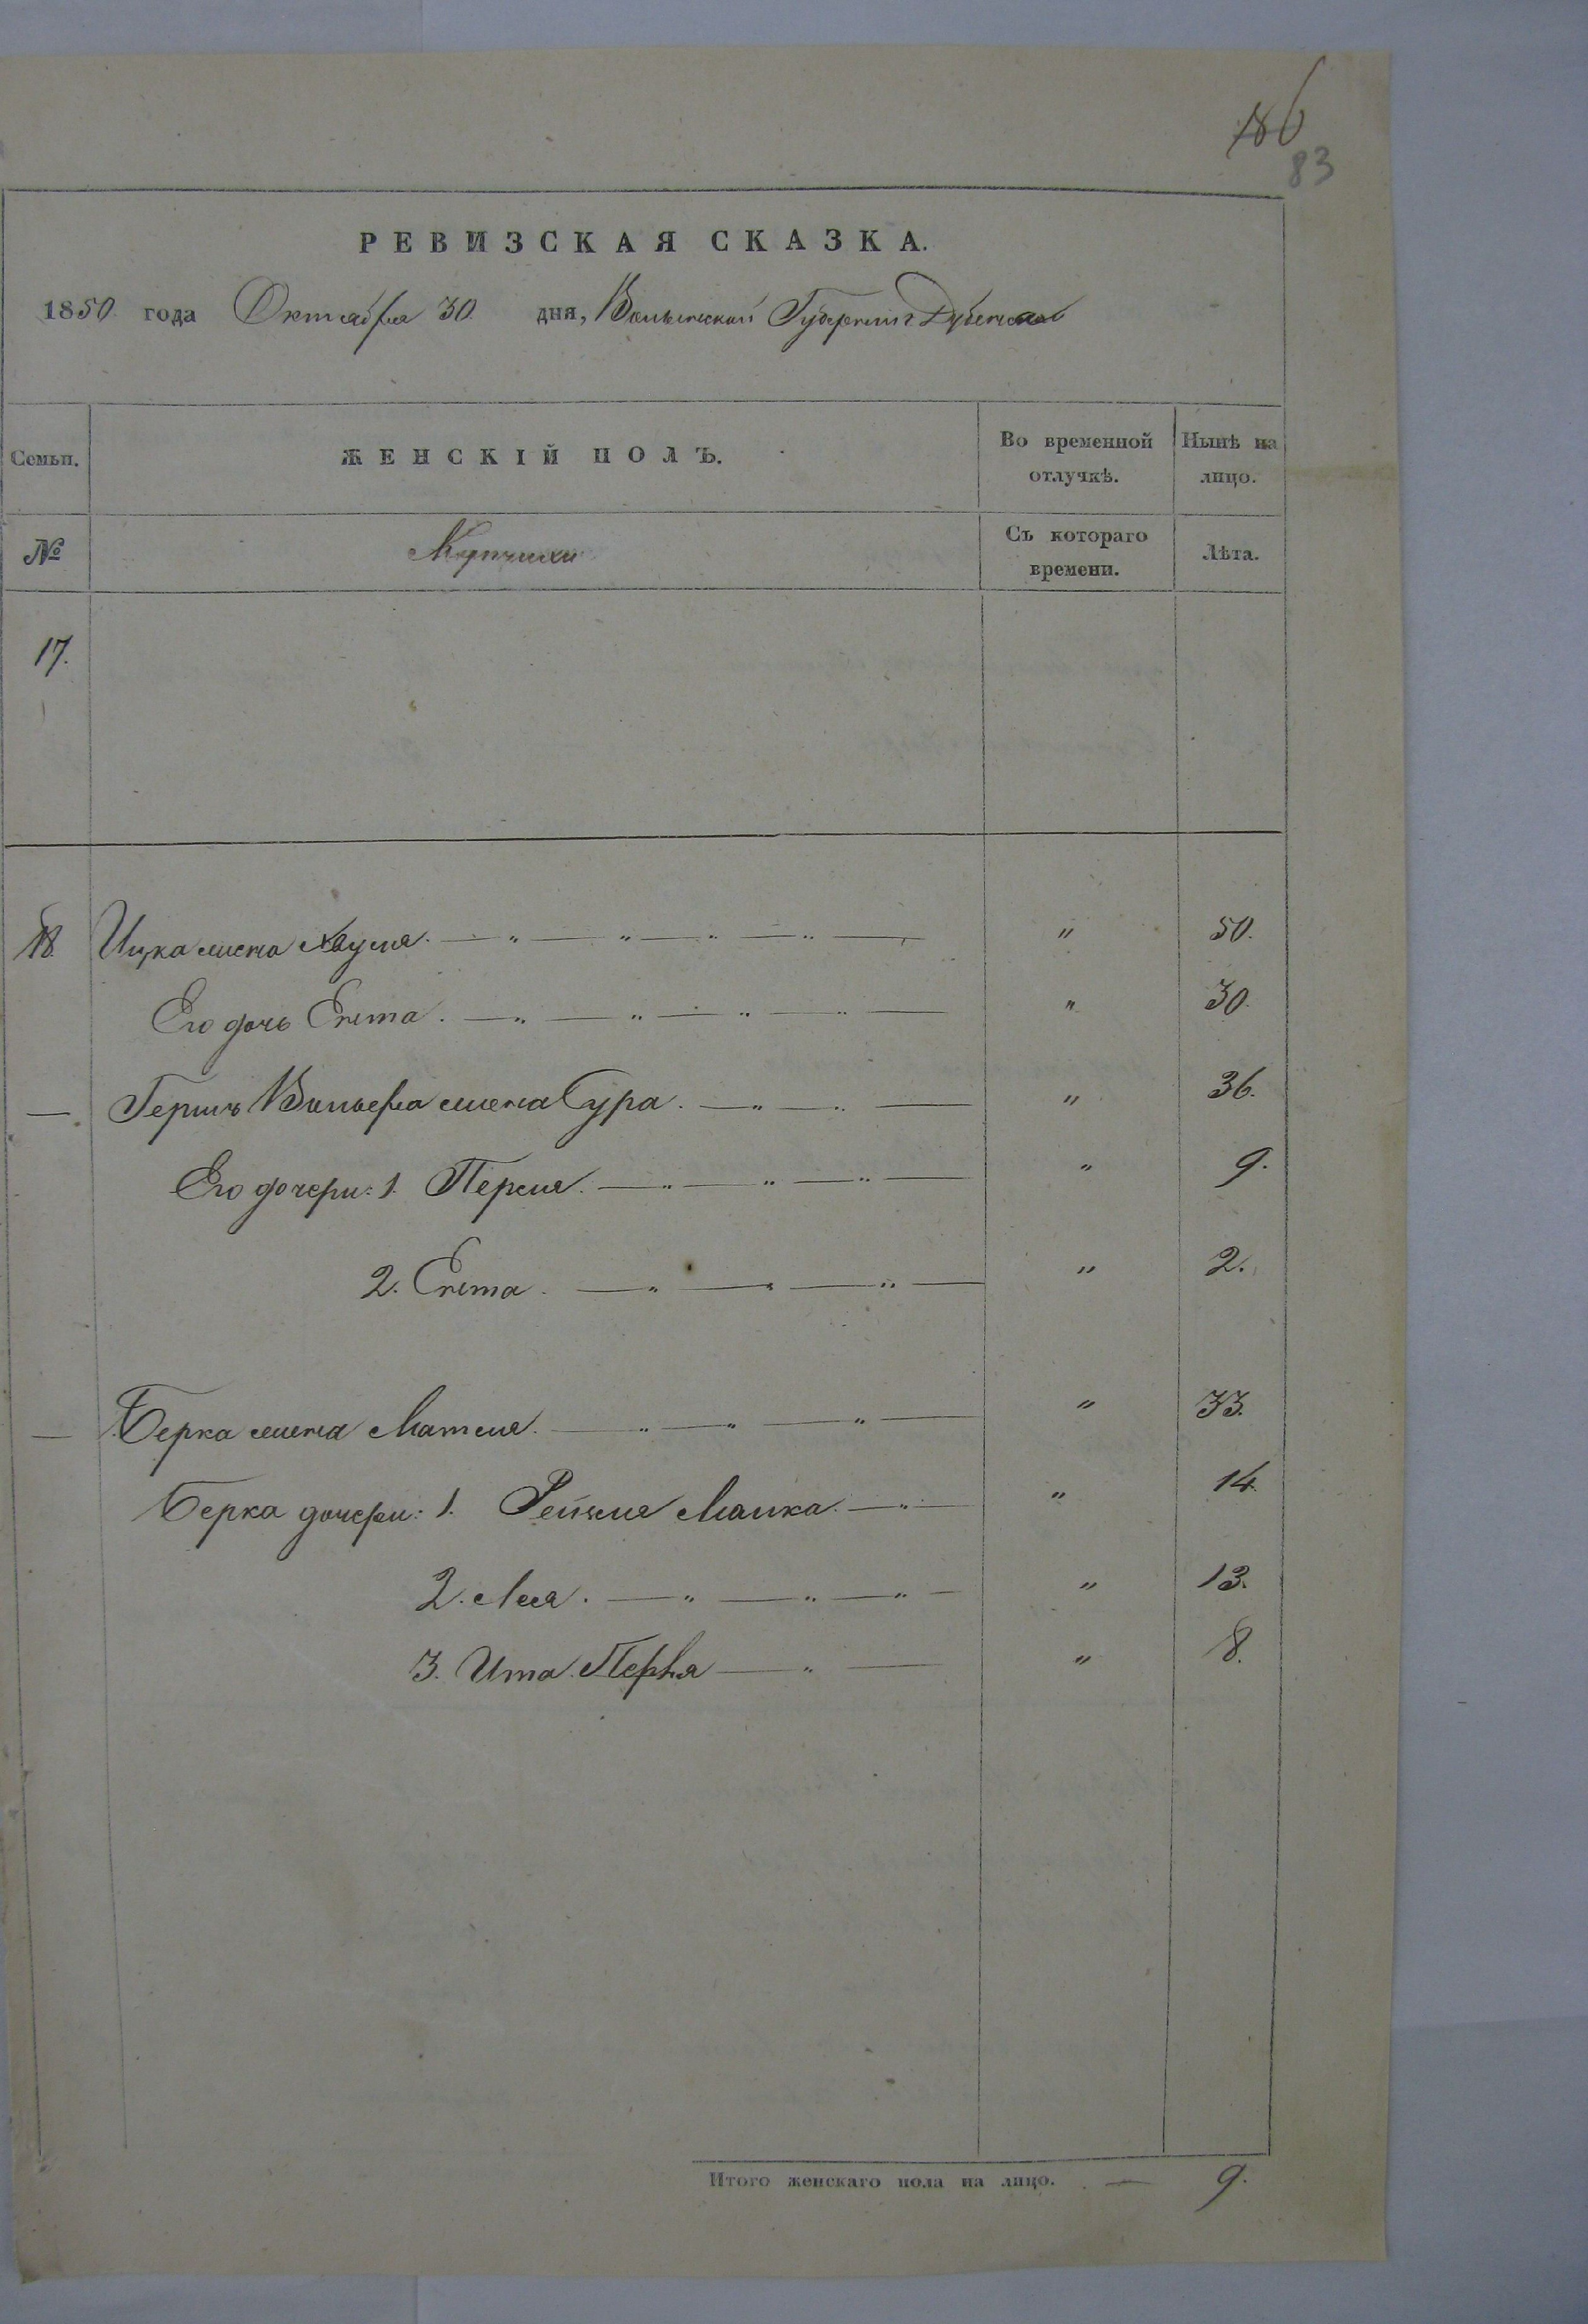 186
83
РЕВИЗСКАЯ СКАЗКА.
1850. года Октября 30. дня, Волынской Губернiи Дубенска
Семьи.
ЖЕНСКІЙ ПОЛЪ.
Во временной отлучкѣ.
Нынѣ на лицо.
№
Съ котораго времени.
Лѣта.
17.
18. Ицка жена Хауля. " 50.
Его дочь Ента. " 30.
— Гершъ Вольфа жена Сура. " 36.
Его дочери: 1. Перля. " 9.
2. Ента. " 2.
— Берка жена Матля. " 33.
Берка дочери: 1. Рейзля Малка. " 14.
2. Лея. " 13.
3. Ита Перля " 8.
Итого женскаго пола на лицо. — 9.